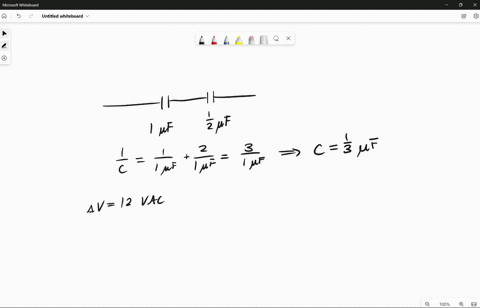 Microsoft Whiteboard
Untitled whiteboard
1 μF 1/2 μF
1/C = 1/1 μF + 2/1 μF = 3/1 μF ⟹ C = 1/3 μF
ΔV = 12 VAC
100%